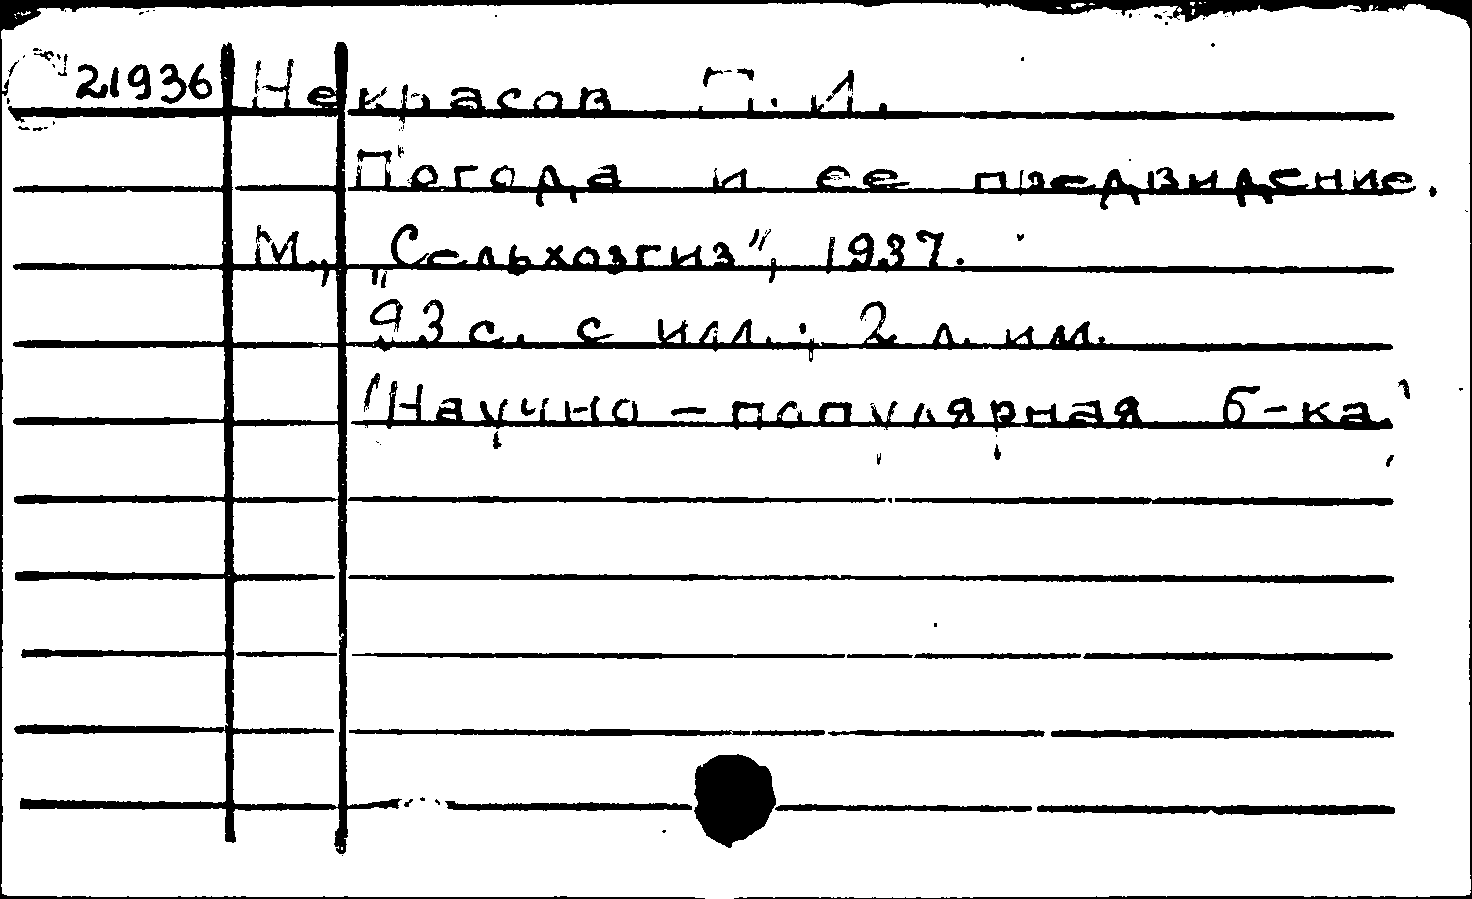 С 21936 Некрасов П. И.
Погода и ее предвидение.
М., „Сельхозгиз“, 1937.
93 с. с илл.; 2 л. илл.
(Научно-популярная б-ка)